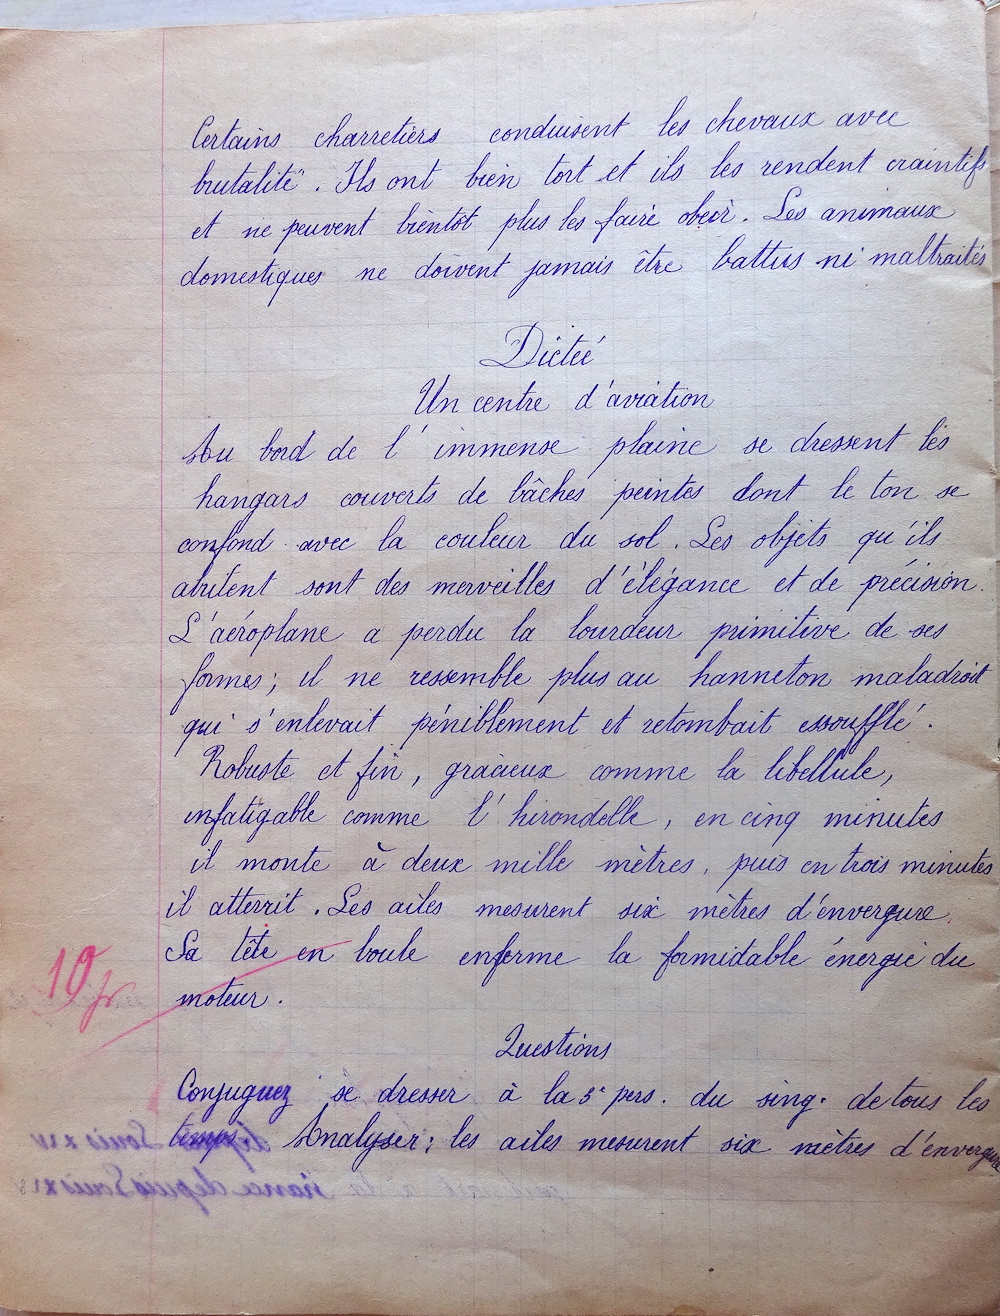 Certains charretiers conduisent les chevaux avec
brutalité. Ils ont bien tort et ils les rendent craintifs
et ne peuvent bientôt plus les faire obeir. Les animaux
domestiques ne doivent jamais être battus ni maltraités
Dictée
Un centre d'aviation
Au bord de l'immense plaine se dressent les
hangars couverts de bâches peintes dont le ton se
confond avec la couleur du sol. Les objets qu'ils
abritent sont des merveilles d'élégance et de précision.
L'aéroplane a perdu la lourdeur primitive de ses
formes; il ne ressemble plus au hanneton maladroit
qui s'enlevait péniblement et retombait essoufflé.
Robuste et fin, gracieux comme la libellule,
infatigable comme l'hirondelle, en cinq minutes
il monte à deux mille mètres, puis en trois minutes
il atterrit. Les ailes mesurent six mètres d'envergure.
Sa tête en boule enferme la formidable énergie du
10
moteur.
Questions
Conjuguez se dresser à la 3e pers. du sing. de tous les
temps Analyser: les ailes mesurent six mètres d'envergure